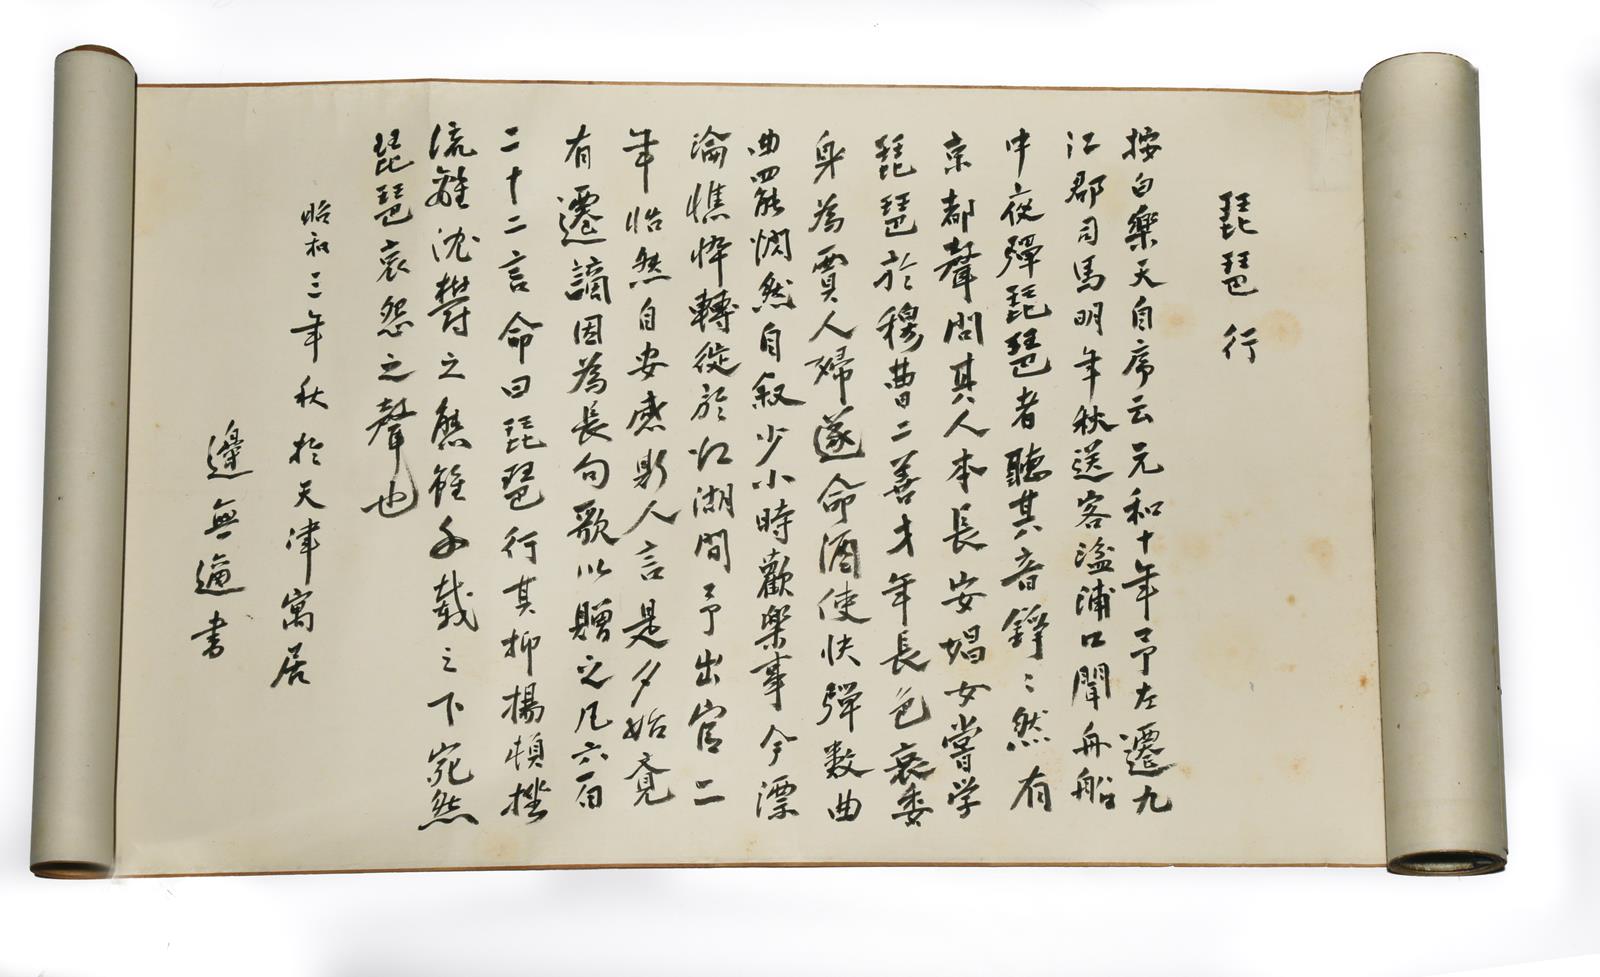 琵琶行
按白樂天自序云元和十年予左遷九
江郡司馬明年秋送客湓浦口聞舟船
中夜彈琵琶者聽其音錚〻然有
京都聲問其人本長安娼女嘗学
琵琶於穆曹二善才年長色衰委
身為賈人婦遂命酒使快彈数曲
曲罷憫然自叙少小時歡樂事今漂
淪憔悴轉徙於江湖間予出官二
年恬然自安感斯人言是夕始覚
有遷謫因為長句歌以贈之凡六百
二十二言命曰琵琶行其抑揚頓挫
流離沈鬱之態雖千載之下宛然
琵琶哀怨之聲也
昭和三年秋於天津寓居
邊無書